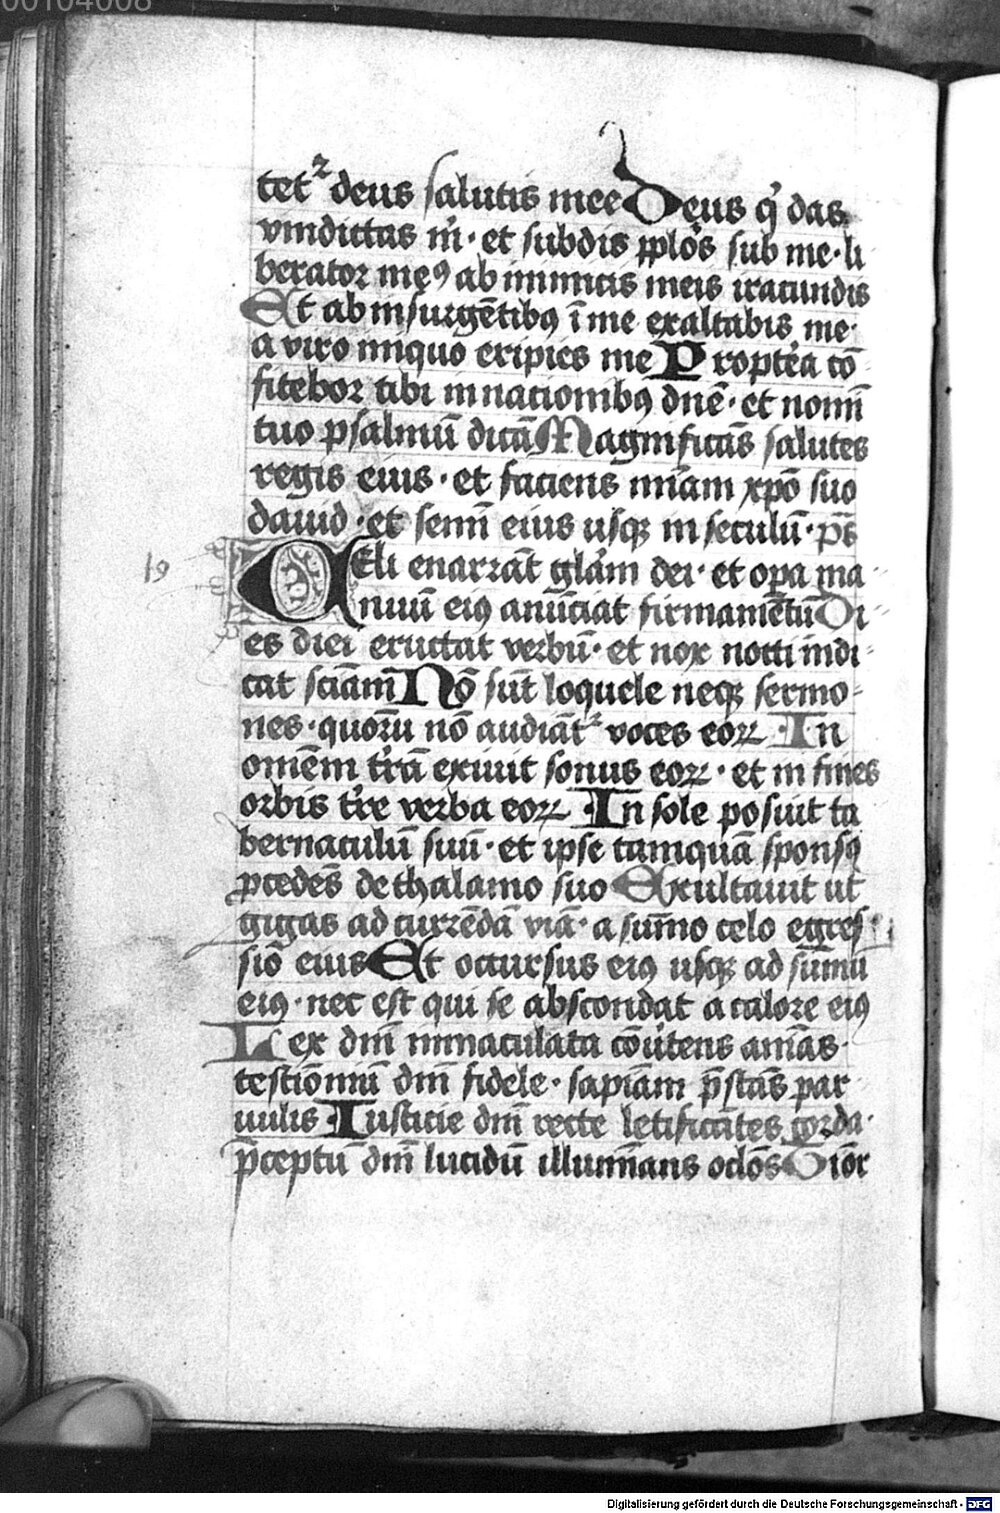 00104008
tetꝛ deus salutis mee Deus q̇ das
vindictas m̓ · et subdis pplōs sub me · li
berator meꝰ ab inimicis meis iracundis
Et ab insurgētibꝫ ī me exaltabis me ·
a viro iniquo eripies me Propt̓ea cō
fitebor tibi in nationibꝫ dn̄e · et nomī
tuo psalmū dicā Magnificās salutes
regis eius · et faciens mīam xp̄o suo
dauid · et semī eius usqꝫ in seculū · p̄s
19
Celi enarrāt gl̓am dei · et opa ma
nuū eiꝰ anūciat firmamētū Di
es diei eructat verbū · et nox nocti indi
cat sciām Nō sūt loquele neqꝫ sermo
nes · quorū nō audiātꝛ voces eoꝝ · In
omēm t̓rā exiuit sonus eoꝝ · et in fines
orbis t̓re verba eoꝝ · In sole posuit ta
bernaculū suū · et ipse tamquā sponsꝰ
ꝓcedēs de thalamo suo Exultauit ut
gigas ad currēdā viā · a sūmo celo egres
siō eius Et occursus eiꝰ usqꝫ ad sūmū
eiꝰ · nec est qui se abscondat a calore eiꝰ
Lex dn̄i inmaculata cōu̓tens aīas ·
testiōniū dn̄i fidele · sapīam p̄stās par
uulis · Iusticie dn̄i recte letificātes corda ·
p̄ceptū dn̄i lucidū illumīans oclōs Tiōr
Digitalisierung gefördert durch die Deutsche Forschungsgemeinschaft - DFG